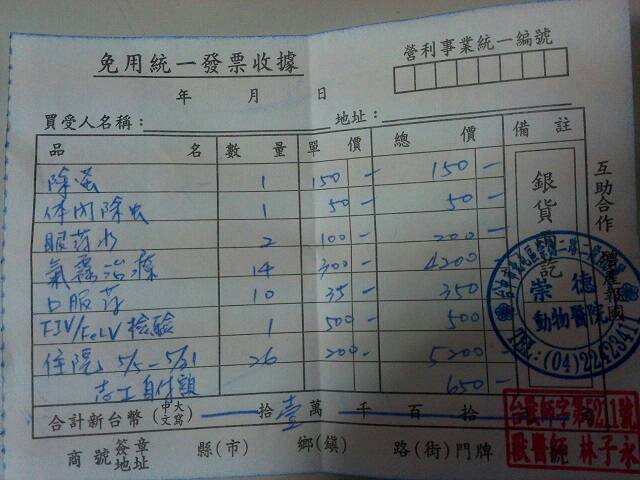 免用統一發票收據
營利事業統一編號
年 月 日
買受人名稱： 地址：
品 名 數 量 單 價 總 價 備 註
除蚤 1 150 - 150 -
体內除虫 1 50 - 50 -
眼药水 2 100 - 200 -
氣霧治療 14 300 - 4200 -
口服药 10 35 - 350 -
FIV/FeLV 檢驗 1 500 - 500 -
住院 5/5-5/31 26 200 - 5200 -
志工自付額 650 -
銀貨 訖
互助合作
崇德
動物醫院
TEL:(04)22423411
合計新台幣(中文大寫) 拾 壹 萬 千 百 拾
獸醫師 林子永
商號 簽章 地址 縣(市) 鄉(鎮) 路(街) 門牌